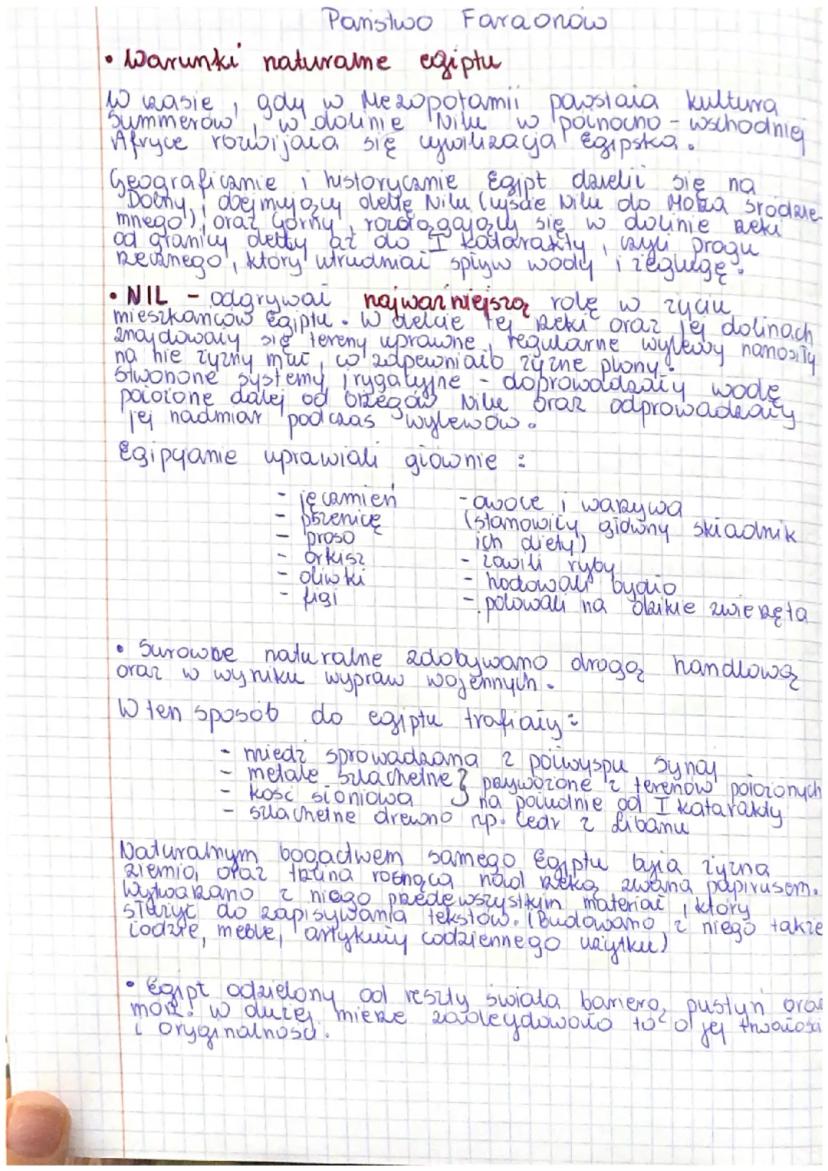 Państwo Faraonów
• Warunki naturalne egiptu
W czasie, gdy w Mezopotamii powstała kultura
Summerów, w dolinie Nilu w północno-wschodniej
Afryce rozwijała się cywilizacja Egipska.
Geograficznie i historycznie Egipt dzielił się na
Dolny, obejmujący deltę Nilu (ujście Nilu do Morza Śródzie-
mnego), oraz Górny, rozciągający się w dolinie rzeki
od granicy delty aż do I katarakty, czyli progu
rzecznego, który utrudniał spływ wody i żeglugę.
• NIL - odgrywał najważniejszą rolę w życiu
mieszkańców Egiptu. W delcie tej rzeki oraz jej dolinach
znajdowały się tereny uprawne, regularne wylewy nanosiły
na nie żyzny muł, co zapewniało żyzne plony.
Stworzone systemy irygacyjne - doprowadzały wodę
położone dalej od brzegów Nilu oraz odprowadzały
jej nadmiar podczas wylewów.
Egipcjanie uprawiali głównie:
- jęczmień - owoce i warzywa
- pszenicę (stanowiły główny składnik
- proso ich diety)
- orkisz - łowili ryby
- oliwki - hodowali bydło
- figi - polowali na dzikie zwierzęta
• Surowce naturalne zdobywano drogą handlową
oraz w wyniku wypraw wojennych.
W ten sposób do egiptu trafiały:
- miedź sprowadzana z półwyspu Synaj
- metale szlachetne } przywożone z terenów położonych
- kość słoniowa } na południe od I katarakty
- szlachetne drewno np. cedr z Libanu
Naturalnym bogactwem samego Egiptu była żyzna
ziemia, oraz trzcina rosnąca nad rzeką, zwana papirusem.
Wytwarzano z niego przede wszystkim materiał, który
służył do zapisywania tekstów. (Budowano z niego także
łodzie, meble, artykuły codziennego użytku)
• Egipt odzielony od reszty świata barierą pustyń oraz
mórz. W dużej mierze zadecydowało to o jej trwałości
i oryginalności.